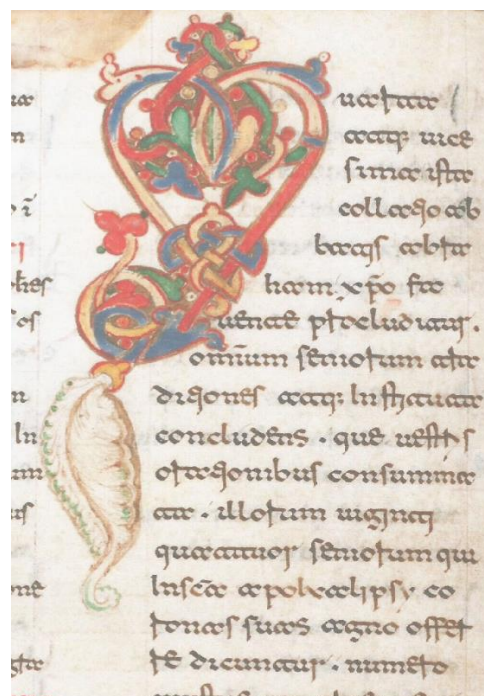 Quarta
atq; uice
sima ista
collatio ab
batis abra
ham xp̄o fa
uente precluditur.
omnium seniorum tra
ditiones atq; Instituta
concludens. que uestris
orationibus consumma
ta. illorum uiginti
quattuor seniorum qui
In sc̄a apocalipsy co
ronas suas agno offer
re dicuntur. numero